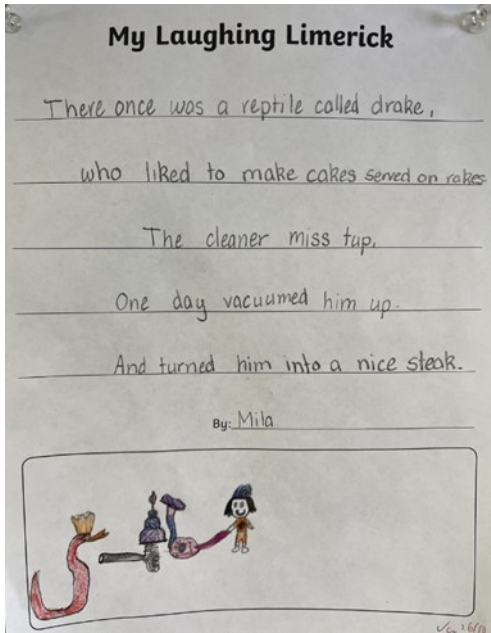 My Laughing Limerick
There once was a reptile called drake,
who liked to make cakes served on rakes
The cleaner miss tup.
One day vacuumed him up.
And turned him into a nice steak.
By: Mila